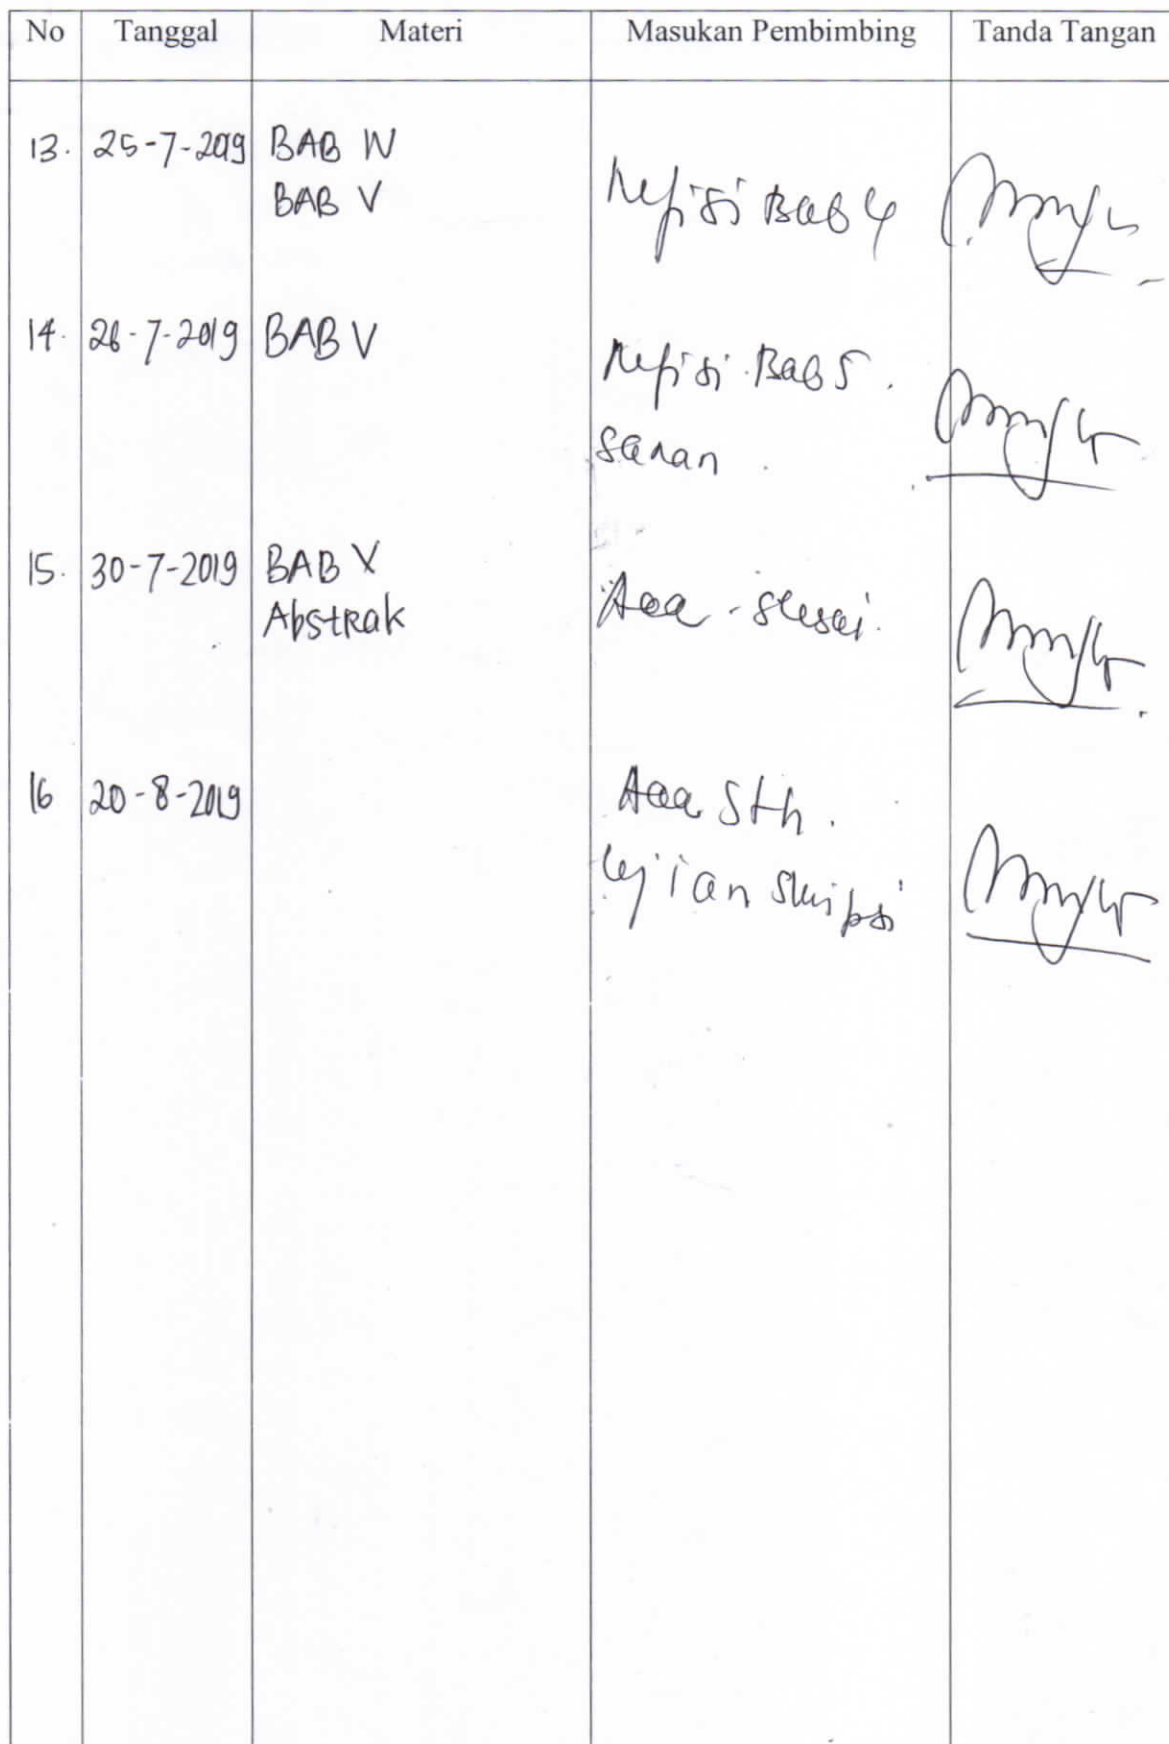 No Tanggal Materi Masukan Pembimbing Tanda Tangan
13. 25-7-2019 BAB IV
BAB V
Refisi Bab 4
14. 26-7-2019 BAB V
Refisi Bab 5.
saran.
15. 30-7-2019 BAB V
Abstrak
Acc - selesai.
16 20-8-2019
Acc Sth.
Ujian skripsi